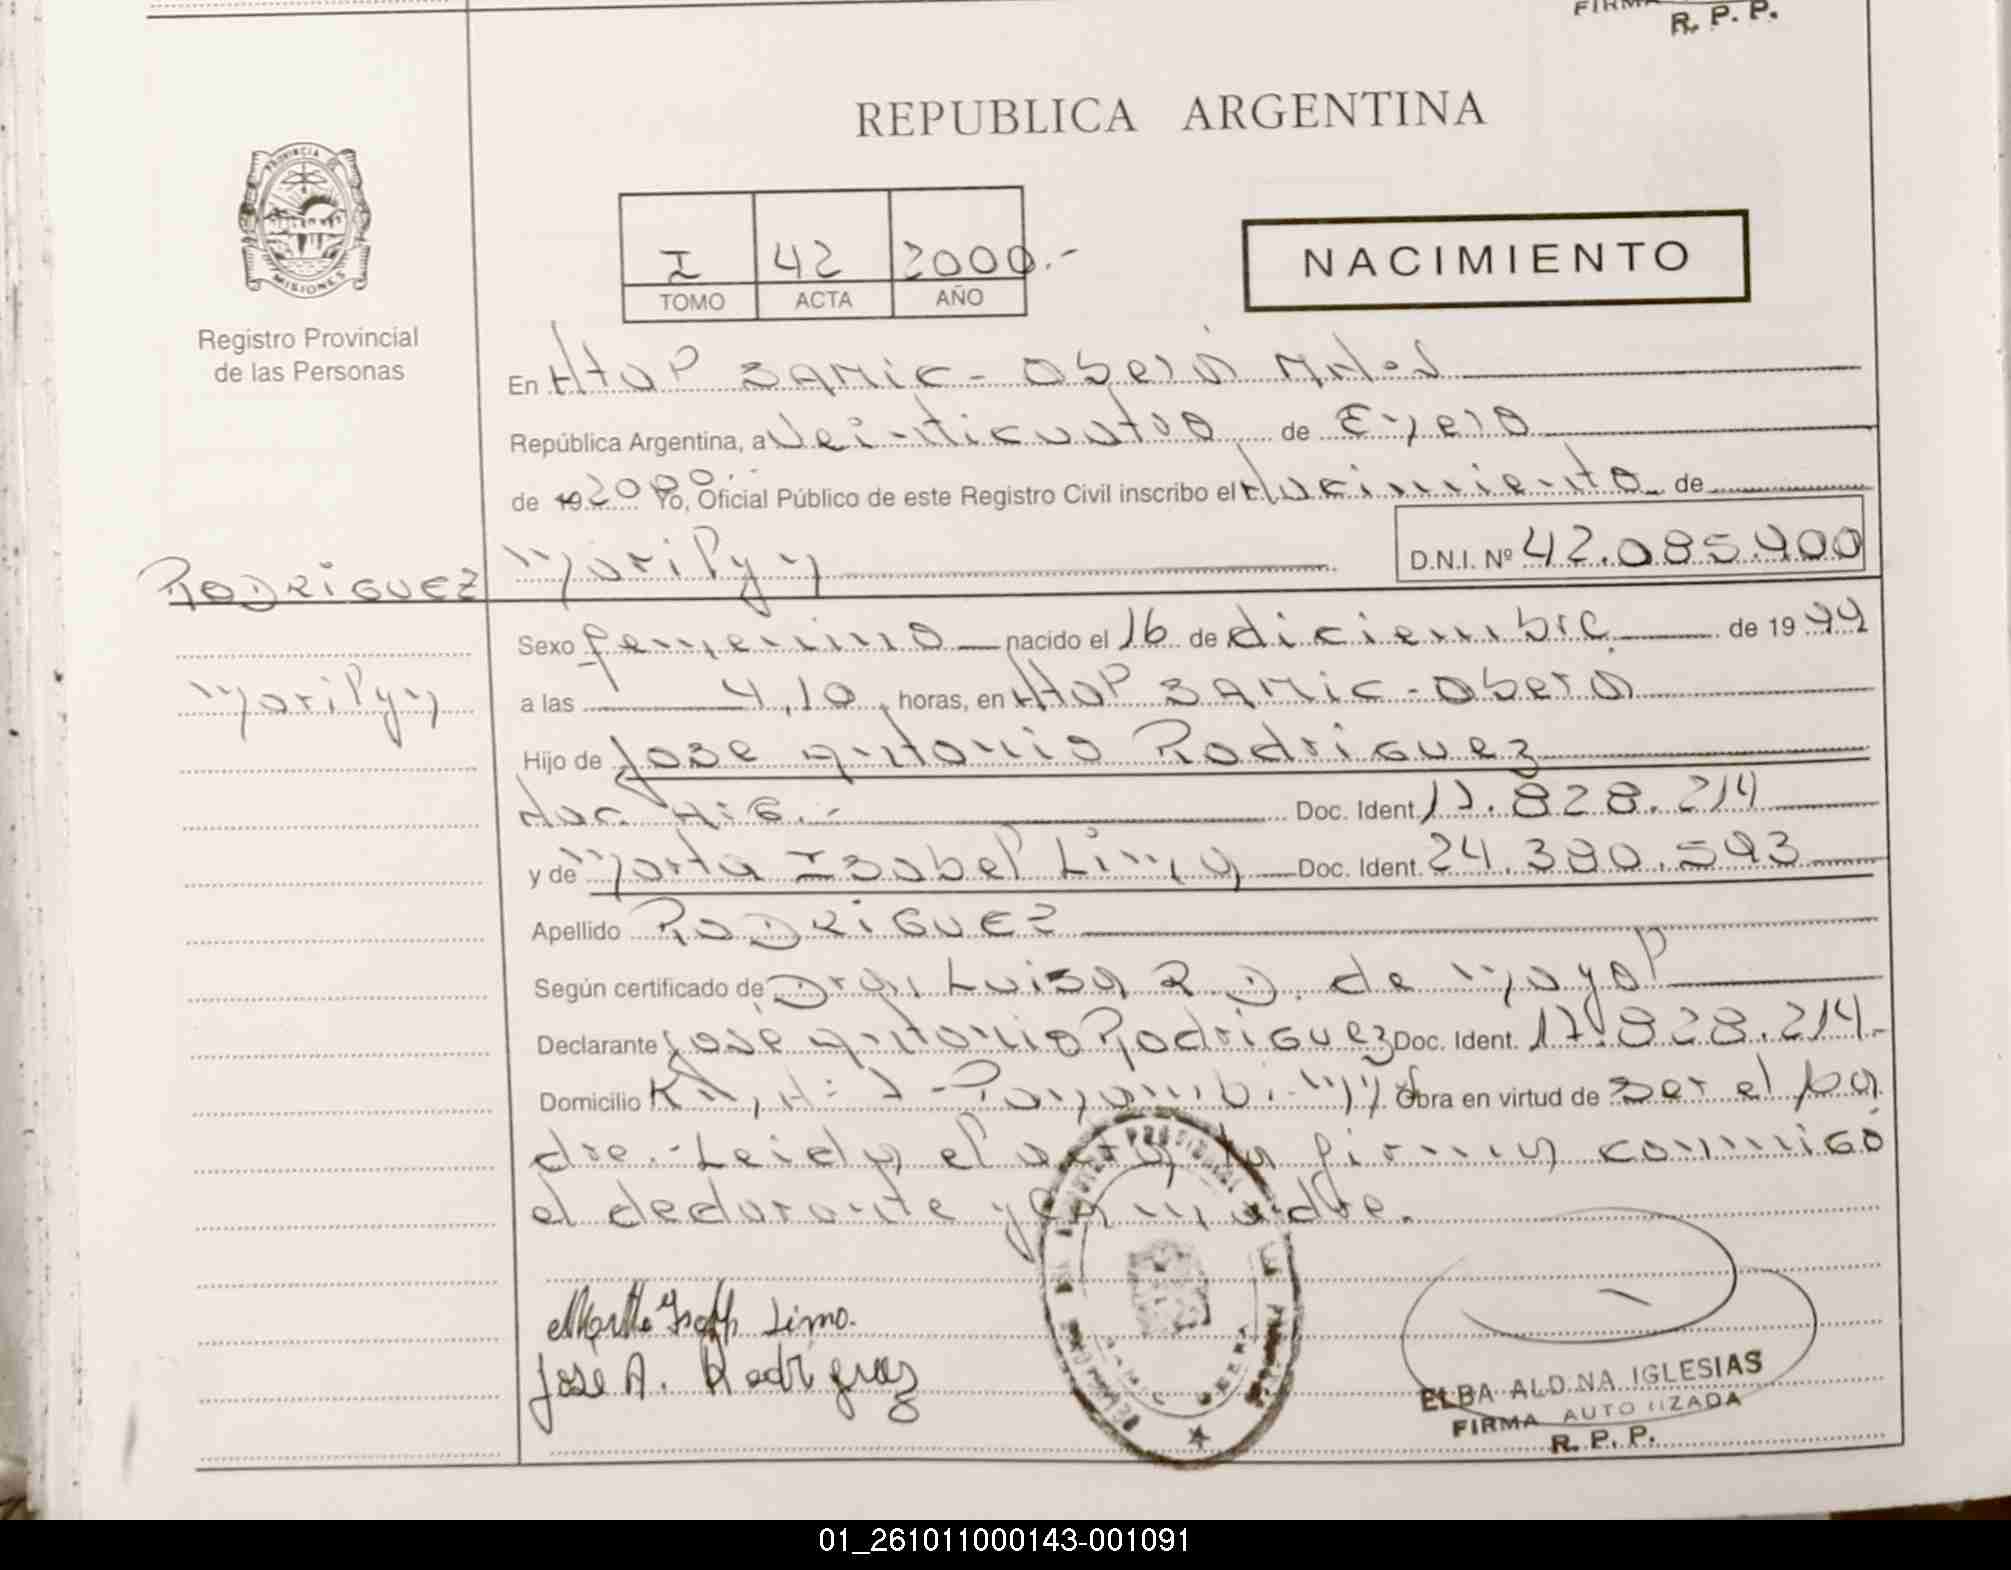 FIRMA
R. P. P.
REPUBLICA ARGENTINA
PROVINCIA DE
MISIONES
Registro Provincial
de las Personas
I 42 2000.-
TOMO ACTA AÑO
NACIMIENTO
En Htal SAMIC - Oberá Mnes
República Argentina, a Veinticuatro de Enero
de 19 2000.- Yo, Oficial Público de este Registro Civil inscribo el Nacimiento de
RODRIGUEZ Marilyn D.N.I. Nº 42.085.900
Sexo femenino nacido el 16 de diciembre de 19 99
Marilyn a las 4,10 horas, en Htal SAMIC - Oberá
Hijo de José Antonio Rodriguez
nac. Doc. Ident. 17.828.214
y de Marta Isabel Lima Doc. Ident. 24.380.593
Apellido RODRIGUEZ
Según certificado de Dra. Luisa R. D. de Mayol
Declarante José Antonio Rodriguez Doc. Ident. 17.828.214.-
Domicilio Panambi. Obra en virtud de ser el pa
dre.- Leida el acta la firman conmigo
el declarante y la madre.
Lima.
José A. Rodríguez
SAMIC OBERA
ELBA ALDINA IGLESIAS
FIRMA AUTORIZADA
R. P. P.
01_261011000143-001091